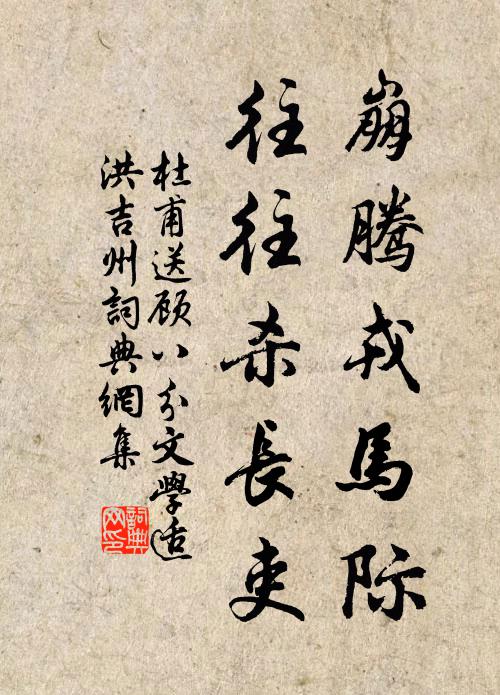 崩腾戎馬际
往往杀長吏
杜甫送顾八分文學适
洪吉州詞典網集
詞典网印